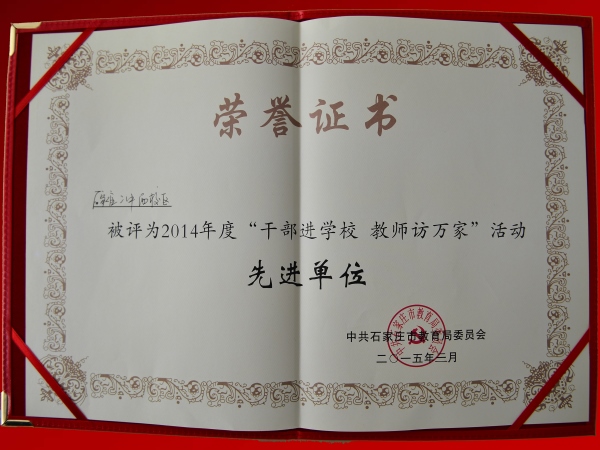 荣誉证书
被评为2014年度“干部进学校 教师访万家”活动
先进单位
中共石家庄市教育局委员会
二〇一五年三月
中共石家庄市教育局委员会